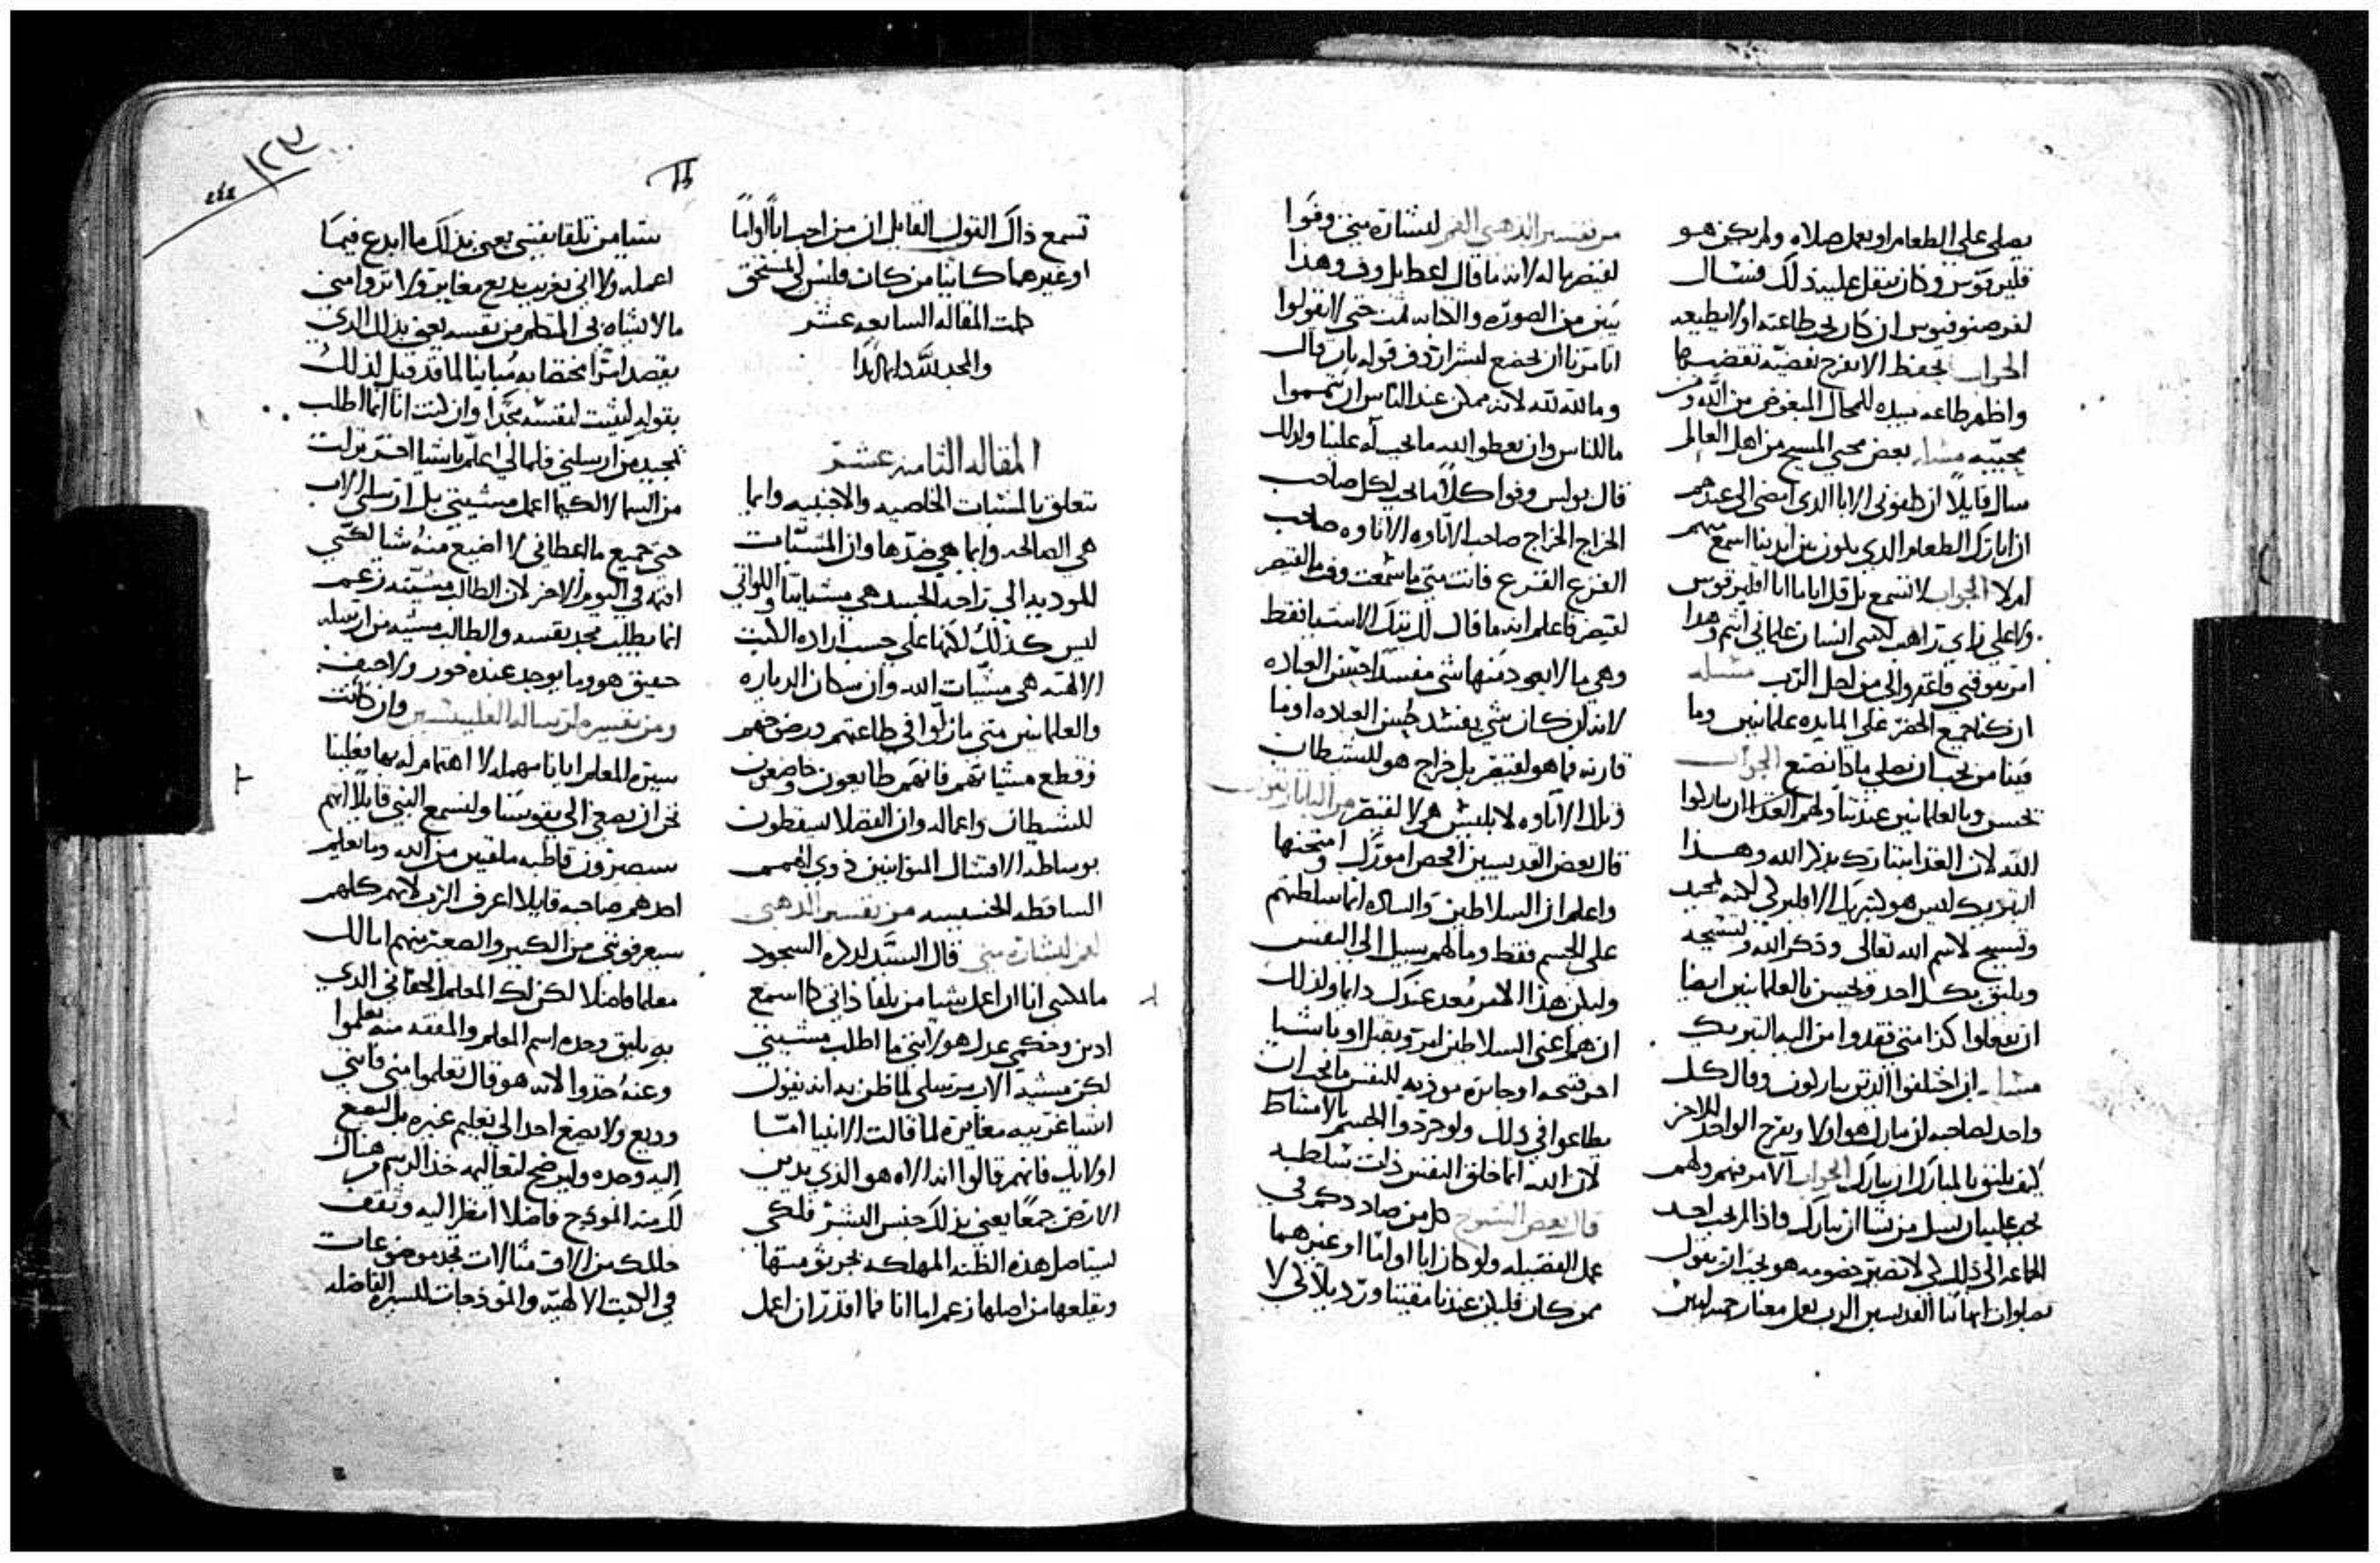 يصلي على الطعام او يعمل صلاه ولم يكن هو
قليريقوس وكان يثقل عليه ذلك فسال
لفرصنوفيوس ان كان يجب طاعته او لا يطيعه
الجواب يحفظ الا يفرح بفضيه تفضيها
واظهر طاعه بيده للمحال المبغوض من الله ومن
محبيه مسله بعض محبي المسيح من اهل العالم
سال قايلا ان طفوني الابا الذي امضي الى عندهم
ان ابارك الطعام الذي يكون بين ايدينا اسمع منهم
ام لا الجواب لا تسمع بل قل لهم ما انا اقليريقوس
ولا على زاي راهب لكني انسان علماني اثيم وهذا
امر يفوقني فاغفروا لي من اجل الرب مسله
ان كنا جميع الحضر على المايده علمانيين وما
فينا من يجب ان يصلي ماذا نصنع الجواب
يحسن وبالعلمانيين عندنا ولهم الغذا ان يباركوا
الله لان الغذا يتبارك بذكر الله وهذا
التبريك ليس هو تبريك الاقليركي لكنه تمجيد
وتسبيح لاسم الله تعالى وذكر الله وتسبيحه
ويليق بكل احد ويحسن بالعلمانيين ايضا
ان يفعلوا كذا متى فقدوا من اليه التبريك
مسله ان اختلفوا الذين يباركون وقال كل
واحد لصاحبه ان يبارك هو اولا ويفرح الواحد للاخر
كيف يليق بالمبارك ان يبارك الجواب الامر منهم ولهم
يجب عليه ان يسل من يشا ان يبارك فاذا لم يجب احد
الجماعه الى ذلك لكي لا تصير خصومه هو يجب ان يقول
بصلوات ابهاتنا القديسين الرب يجعل معنا رحمه امين
من تفسير الذهبي الفم لبشارة متى وفوا
لقيصر ما له لانه ما قال اعطا بل وفوا وهذا
يبين من الصوره والكتابه ثمت حتى لا يقولوا
انك امرتنا ان نخضع لبشر اردف قوله بان قال
وما لله لله لانه ممكن عند الناس ان يتمموا
ما للناس وان يعطوا الله ما يجب له علينا ولذلك
قال بولس وفوا كلا ما يجب لكل صاحب
الخراج الخراج صاحب الاتاوه الاتاوه صاحب
الفزع الفزع فانت متى ما سمعت وفوا ما لقيصر
لقيصر فاعلم انه ما قال لك تلك الاشيا فقط
وهي ما لا يوجد فيها شي مفسدا حسن العباده
لانه ان كان شي يفسد حسن العباده او ما
قارنه فما هو لقيصر بل خراج هو للشيطان
وتلك الاتاوه لابليس هي لا لقيصر من البابا ريقون
قال بعض القديسين افحص امورك وامتحنها
واعلم ان السلاطين والساده انما سلطتهم
على الجسم فقط وما لهم سبيل الى النفس
وليكن هذا الامر معد عندك دايما ولذلك
ان هم اعني السلاطين امروا بقتل او باشيا
اخر قبيحه او جايره موذيه للنفس ما يجب ان
يطاعوا في ذلك ولو جردوا الجسم بالامشاط
لان الله انما خلق النفس ذات سلطه
قال بعض الشيوخ كل من صاددكم في
عمل الفضيله ولو كان ابا او اما او غيرهما
ممن كان فليكن عندنا مقيتا ورديا لاني لا
تسمع ذاك القول القايل ان من احب ابا او اما
او غيرهما كاينا من كان فليس لي بمستحق
كملت المقاله السابعه عشر
والحمد لله دايما ابدا
المقاله الثامنه عشر
تتعلق بالمشيات الخاصيه والاجنبيه وايما
هي الصالحه وايما هي ضدها وان المشيات
الموديه الى راحه الجسد هي مشياتنا واللواتي
ليس كذلك لكنها على حسب اراده الكتب
الالهيه هي مشيات الله وان سكان الدياره
والعلمانيين متى ما زلوا في طاعتهم ورفضهم
وقطع مشياتهم فانهم طايعون وخاضعون
للشيطان واعماله وان الفضلا يسقطون
بوساطه الامتثال المتوانيين ذوي الهمم
الساقطه الخسيسه من تفسير الذهبي
الفم لبشارة متى قال السيد لذكره السجود
ما يمكنني انا ان اعمل شيا من تلقا ذاتي كما اسمع
ادين وحكمي عدل هو لانني ما اطلب مشيتي
لكن مشية الاب مرسلي لما ظن به انه يقول
اشيا غريبه مغايره لما قالت الانبيا امّا
اولايك فانهم قالوا ان الاله هو الذي يدين
الارض جمعا يعني بذلك جنس البشر فلكي
يستاصل هذه الظنه المهلكه بجرثومتها
ويقلعها من اصلها زعم اما انا فما اقدر ان اعمل
شيا من تلقا نفسي يعني بذاك ما ابدع فيما
اعمله ولا اتي بغريب بديع مغاير ولا تروا مني
ما لا يشاه بي المتظلم من نفسه يعني بذلك الذي
يقصد امرا مختصا به مباينا لما قد قيل لذلك
بقوله ليثبت لنفسه مجدا وان كنت انا انما اطلب
تمجيد من ارسلني فلما لي اعلم باشيا اخر نزلت
من السما لا لكيما اعمل مشيتي بل ارسلني الاب
حتى جميع ما اعطاني لا اضيع منه شيا لكني
اقيمه في اليوم الاخر لان الطالب مشيته زعم
انما يطلب مجد نفسه والطالب مشيه من ارسله
حقيق هو وما يوجد عنده جور ولا حيف
ومن تفسيره لرساله الفليبسيين وان كانت
سيرة المعلم ايانا مهمله لا اهتمام له بها فعلينا
نحن ان نصغي الى نفوسنا ولنسمع النبي قايلا انهم
سيصيرون قاطبه ملقنين من الله وما يعلم
احدهم صاحبه قايلا اعرف الرب لانهم كلهم
سيعرفونني من الكبير والصغير منهم اما لك
معلما فاضلا لكن لك المعلم الحقاني الذي
به يليق وحده اسم المعلم والمفقه منه تعلموا
وعنه خذوا لانه هو قال تعلموا مني فانني
وديع ولا يصغ احد الى تعليم غيره بل ليصغ
اليه وحده وليرضح لتعاليمه خذ الرسم من هناك
لك منه الموذج فاضلا انظر اليه وثقف
حالك من الاف مثالات تجد موضوعات
في الكتب الالهيه والنموذجات للسيره الفاضله